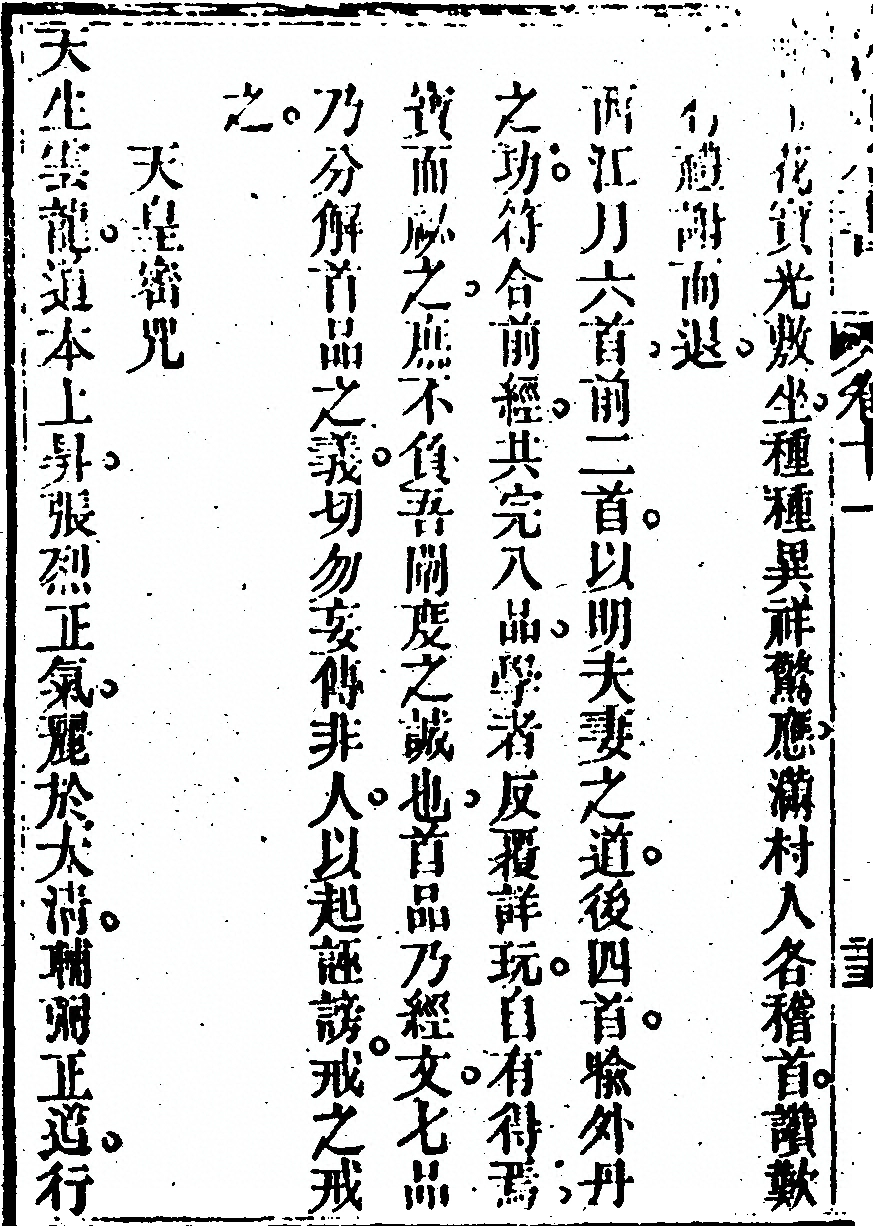 卷十一
花寶光敷坐種種異祥驚應滿村人各稽首讚歎
禮謝而退
西江月六首前二首以明夫妻之道後四首喻外丹
之功符合前經共完八品學者反覆詳玩自有得焉
寶而祕之庶不負吾開度之誠也首品乃經文七品
乃分解首品之義切勿妄傳非人以起誣謗戒之戒
之
天皇密咒
天生雲龍道本上昇張烈正氣麗於太清輔弼正道行